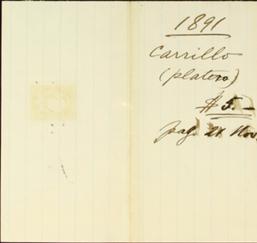 1891
Carrillo
(platero)
$5.—
pag. 21 Nov.